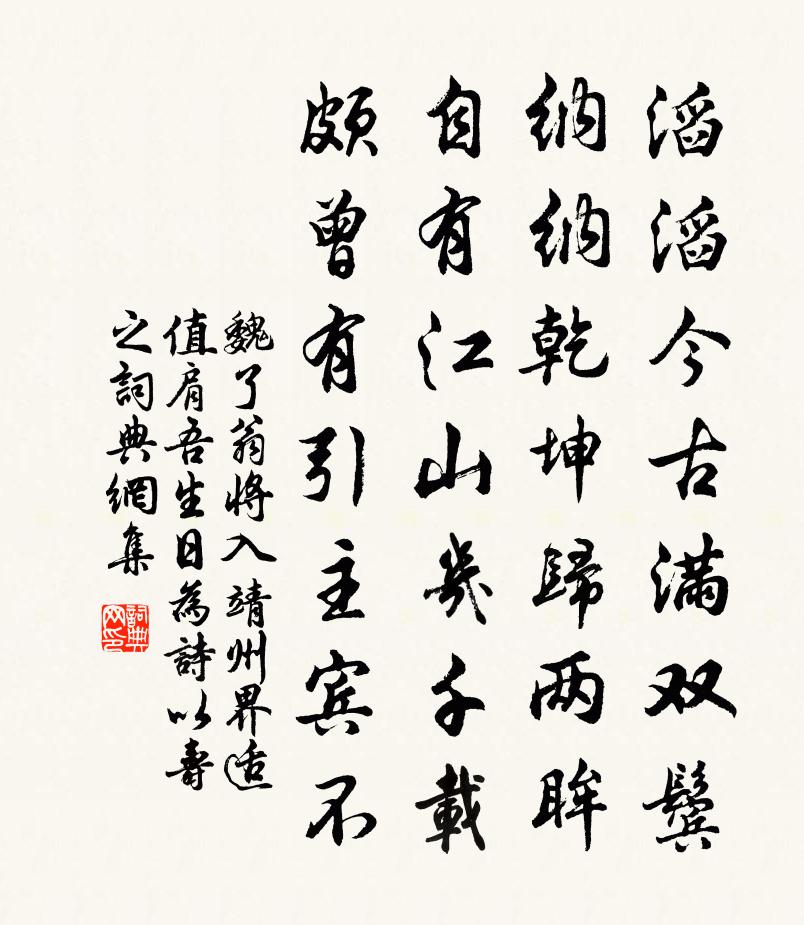 滔滔今古满双鬓
纳纳乾坤歸两眸
自有江山幾千載
颇曾有引主宾不
魏了翁将入靖州界适
值肩吾生日為詩以壽
之詞典網集
詞典
网印